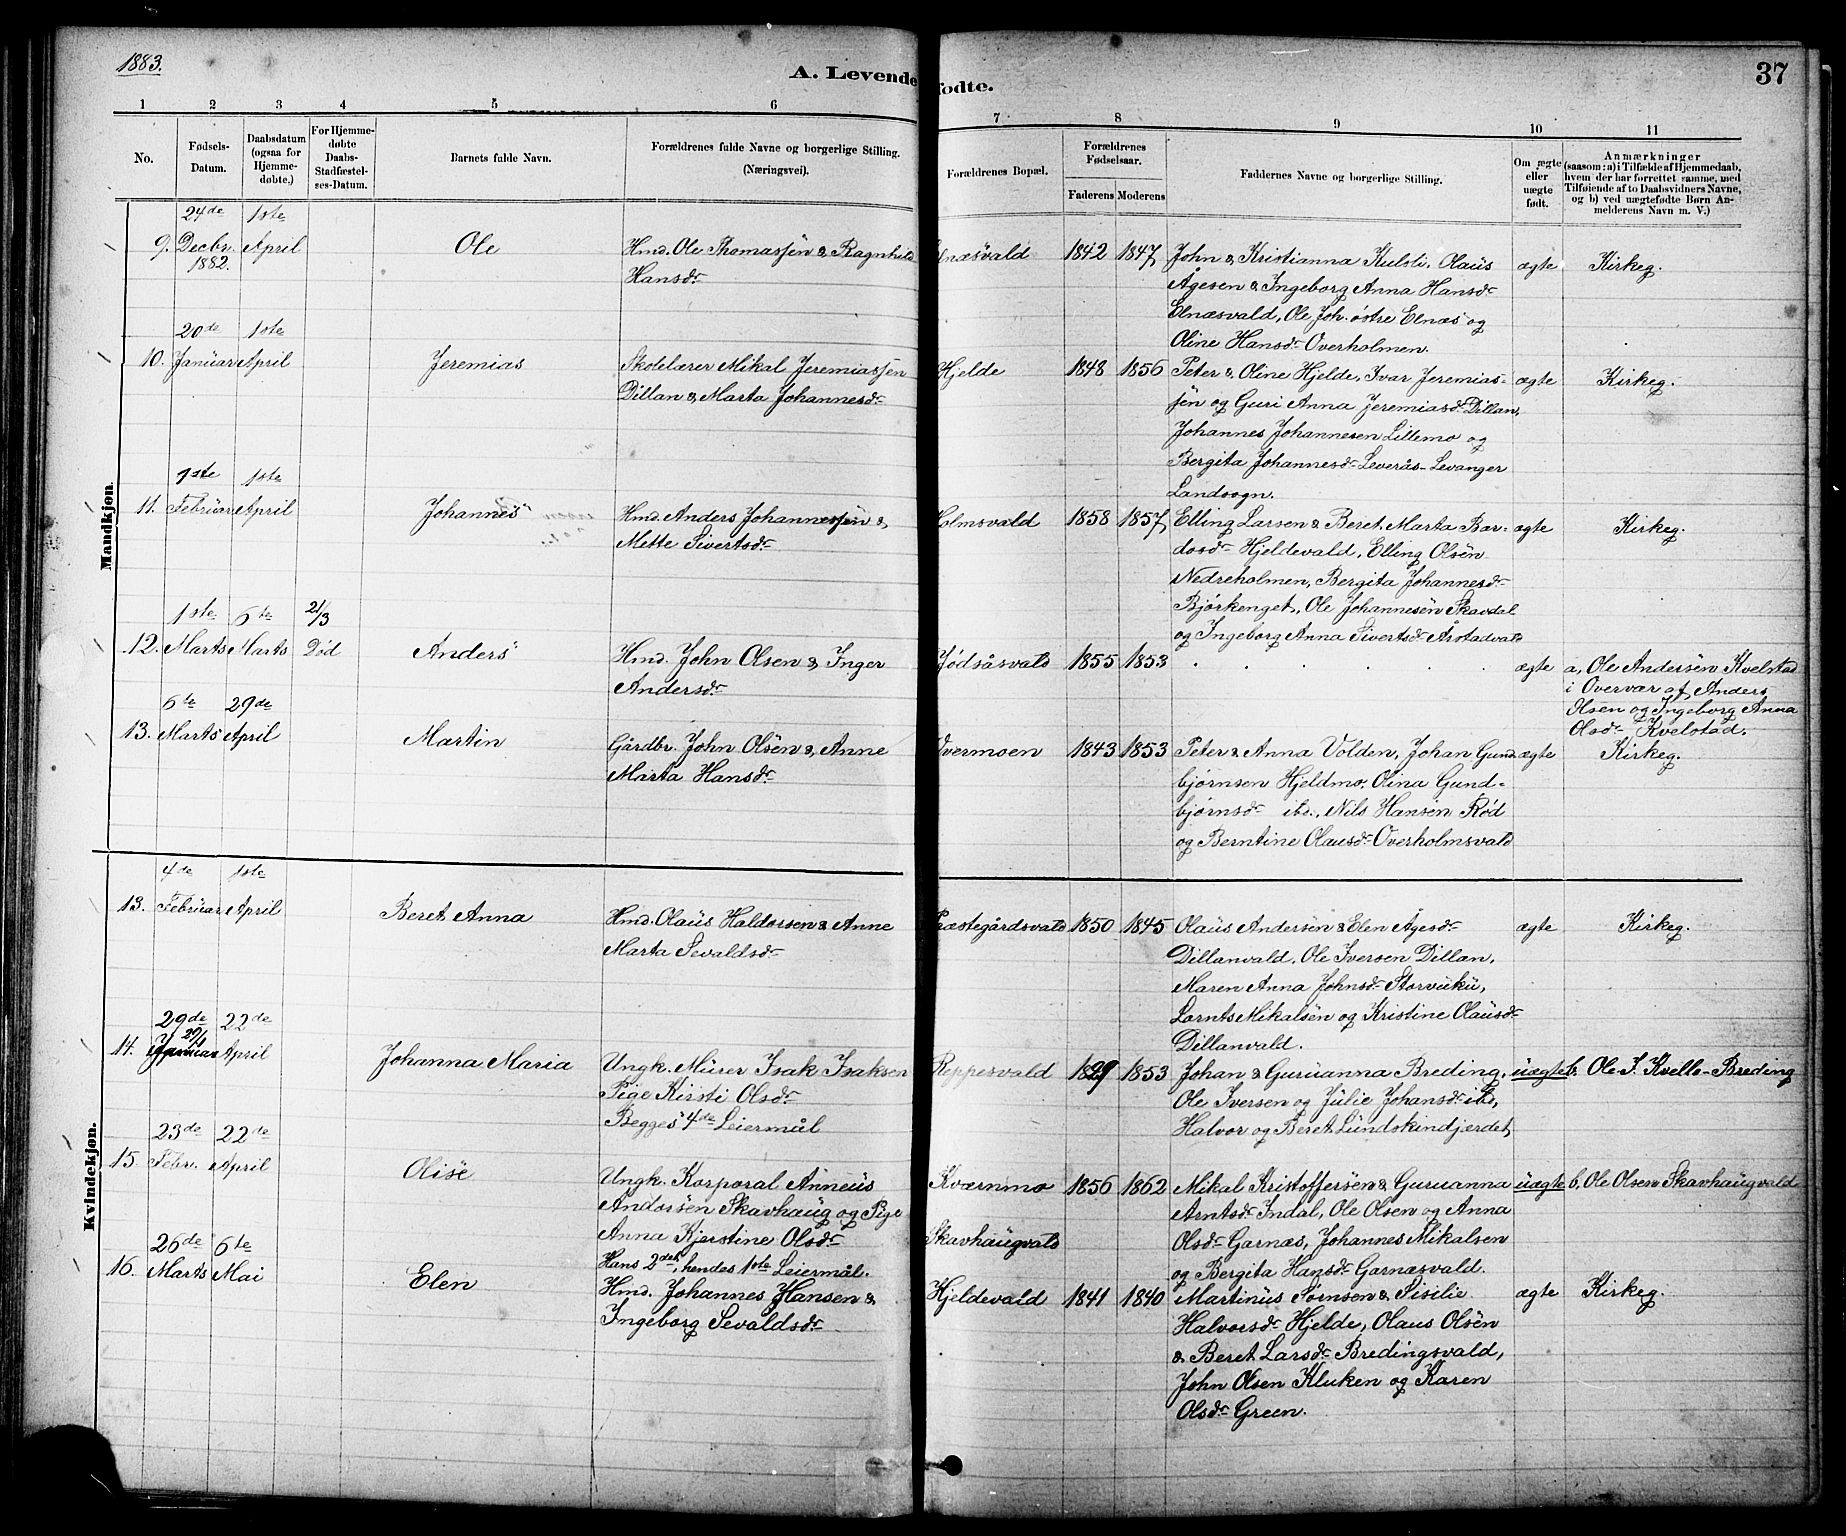 1883.
A. Levende fødte.
37
1 2 3 4 5 6 7 8 9 10 11
No.
Fødsels-
Datum.
Daabsdatum
(ogsaa for
Hjemme-
døbte.)
For Hjemme-
døbte
Daabs-
Stadfæstel-
ses-Datum.
Barnets fulde Navn.
Forældrenes fulde Navne og borgerlige Stilling.
(Næringsvei).
Forældrenes Bopæl.
Forældrenes
Fødselsaar.
Faderens Moderens
Faddernes Navne og borgerlige Stilling.
Om ægte
eller
uægte
født.
Anmærkninger
(saasom: a) i Tilfælde af Hjemmedaab,
hvem der har forrettet samme, med
Tilføiende af to Daabsvidners Navne,
og b) ved uægtefødte Børn An-
melderens Navn m. V.)
Mandkjøn.
24de 1ste
9. Decbr. April Ole Hmd. Ole Thomassen & Ragnhild næsvald 1842 1847 John & Kristianna Kulsli, Olaüs ægte Kirkeg.
1882. Hansdr Ågesen & Ingeborg Anna Hansdr
Elnæsvald, Ole Joh. østre Elnæs og
20de 1ste Oline Hansdr Overholmen.
10. Janüar April Jeremias Skolelærer Mikal Jeremiassen Hjelde 1848 1856 Peter & Oline Hjelde, Ivar Jeremias- ægte Kirkeg.
Dillan & Marta Johannesdr sen og Guri Anna Jeremiasdr Dillan,
Johannes Johannesen Lillemo og
Bergita Johannesdr Leverås-Levanger
1ste Landsogn.
11. Februar April Johannes Hmd. Anders Johannessen & Holmsvald 1858 1857 Elling Larsen & Beret Marta Bar- ægte Kirkeg.
Mette Sivertsdr dosdr Hjeldevald, Elling Olsen
Nedreholmen, Bergita Johannesdr
Bjørkenget, Ole Johannesen Skavdal
og Ingeborg Anna Sivertsdr Årstadvald
1ste 6te 21/3
12. Marts Marts Død Anders Hmd. John Olsen & Inger Jødsåsvald 1855 1853 . . . . . ægte a, Ole Andersen Kvelstad
Andersdr i Overvær af Anders
Olsen og Ingeborg Anna
Olsdr Kvelstad.
6te 29de
13. Marts April Martin Gårdbr. John Olsen & Anne Overmoen 1843 1853 Peter & Anna Volden, Johan Gund- ægte Kirkeg.
Marta Hansdr bjørnsen Hjeldmo, Olina Gund-
bjørnsdr ibd., Nils Hansen Rød
og Berntine Olausdr Overholmsvald
Kvindekjøn.
4de 1ste
13. Februar April Beret Anna Hmd. Olaüs Haldorsen & Anne Præstegårdsvald 1850 1845 Olaüs Andersen & Elen Ågesdr ægte Kirkeg.
Marta Sevaldsdr Dillanvald, Ole Iversen Dillan,
Maren Anna Johnsdr Storvuku,
Lornts Mikalsen og Kristine Olausdr
Dillanvald.
29de 22de
29/1
14. Januar April Johanna Maria Ungk. Mürer Isak Isaksen Reppesvald 1829 1853 Johan & Guruanna Breding, uægte b, Ole J. Kvello-Breding
Pige Kirsti Olsdr Ole Iversen og Julie Johansdr ibd,
Begges 4de Leiermål Halvor og Beret Lundskindjerdet,
23de 22de
15. Febr. April Olise Ungk. Korporal Anneus Kværnmo 1856 1862 Mikal Kristoffersen & Guruanna uægte b, Ole Olsen Skavhaugvald
Andorsen Skavhaug og Pige Arntsdr Indal, Ole Olsen og Anna
Anna Kjerstine Olsdr Skavhaugvald Olsdr Garnæs, Johannes Mikalsen
Hans 2det, hendes 1ste Leiermål. og Bergita Hansdr Garnæsvald.
26de 6te
16. Marts Mai Elen Hmd. Johannes Hansen & Hjeldevald 1841 1840 Martinüs Sørnsen & Sisilie ægte Kirkeg.
Ingeborg Sevaldsdr Halvorsdr Hjelde, Olaus Olsen
& Beret Larsdr Bredingsvald,
John Olsen Kluken og Karen
Olsdr Green.